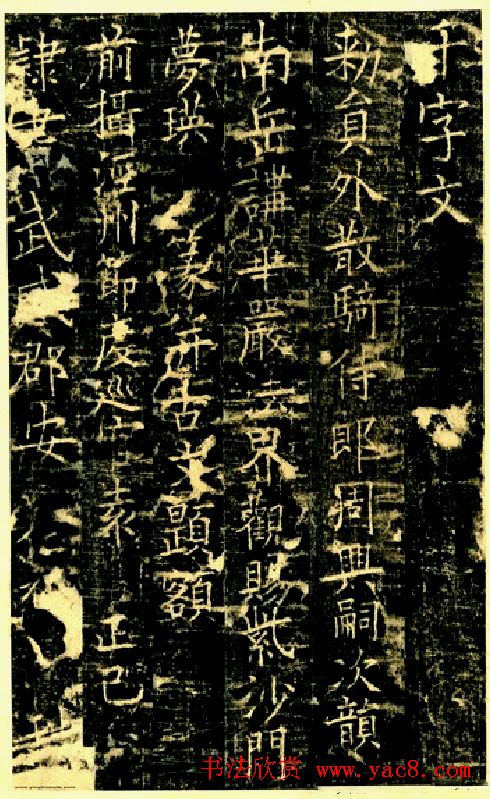 千字文
勑員外散騎侍郎周興嗣次韻
南岳講華嚴法界觀賜紫沙門
夢瑛 篆并古文題額
前攝涇州節度巡官袁 正己
隸書 武威郡安
书法欣赏 www.yac8.com